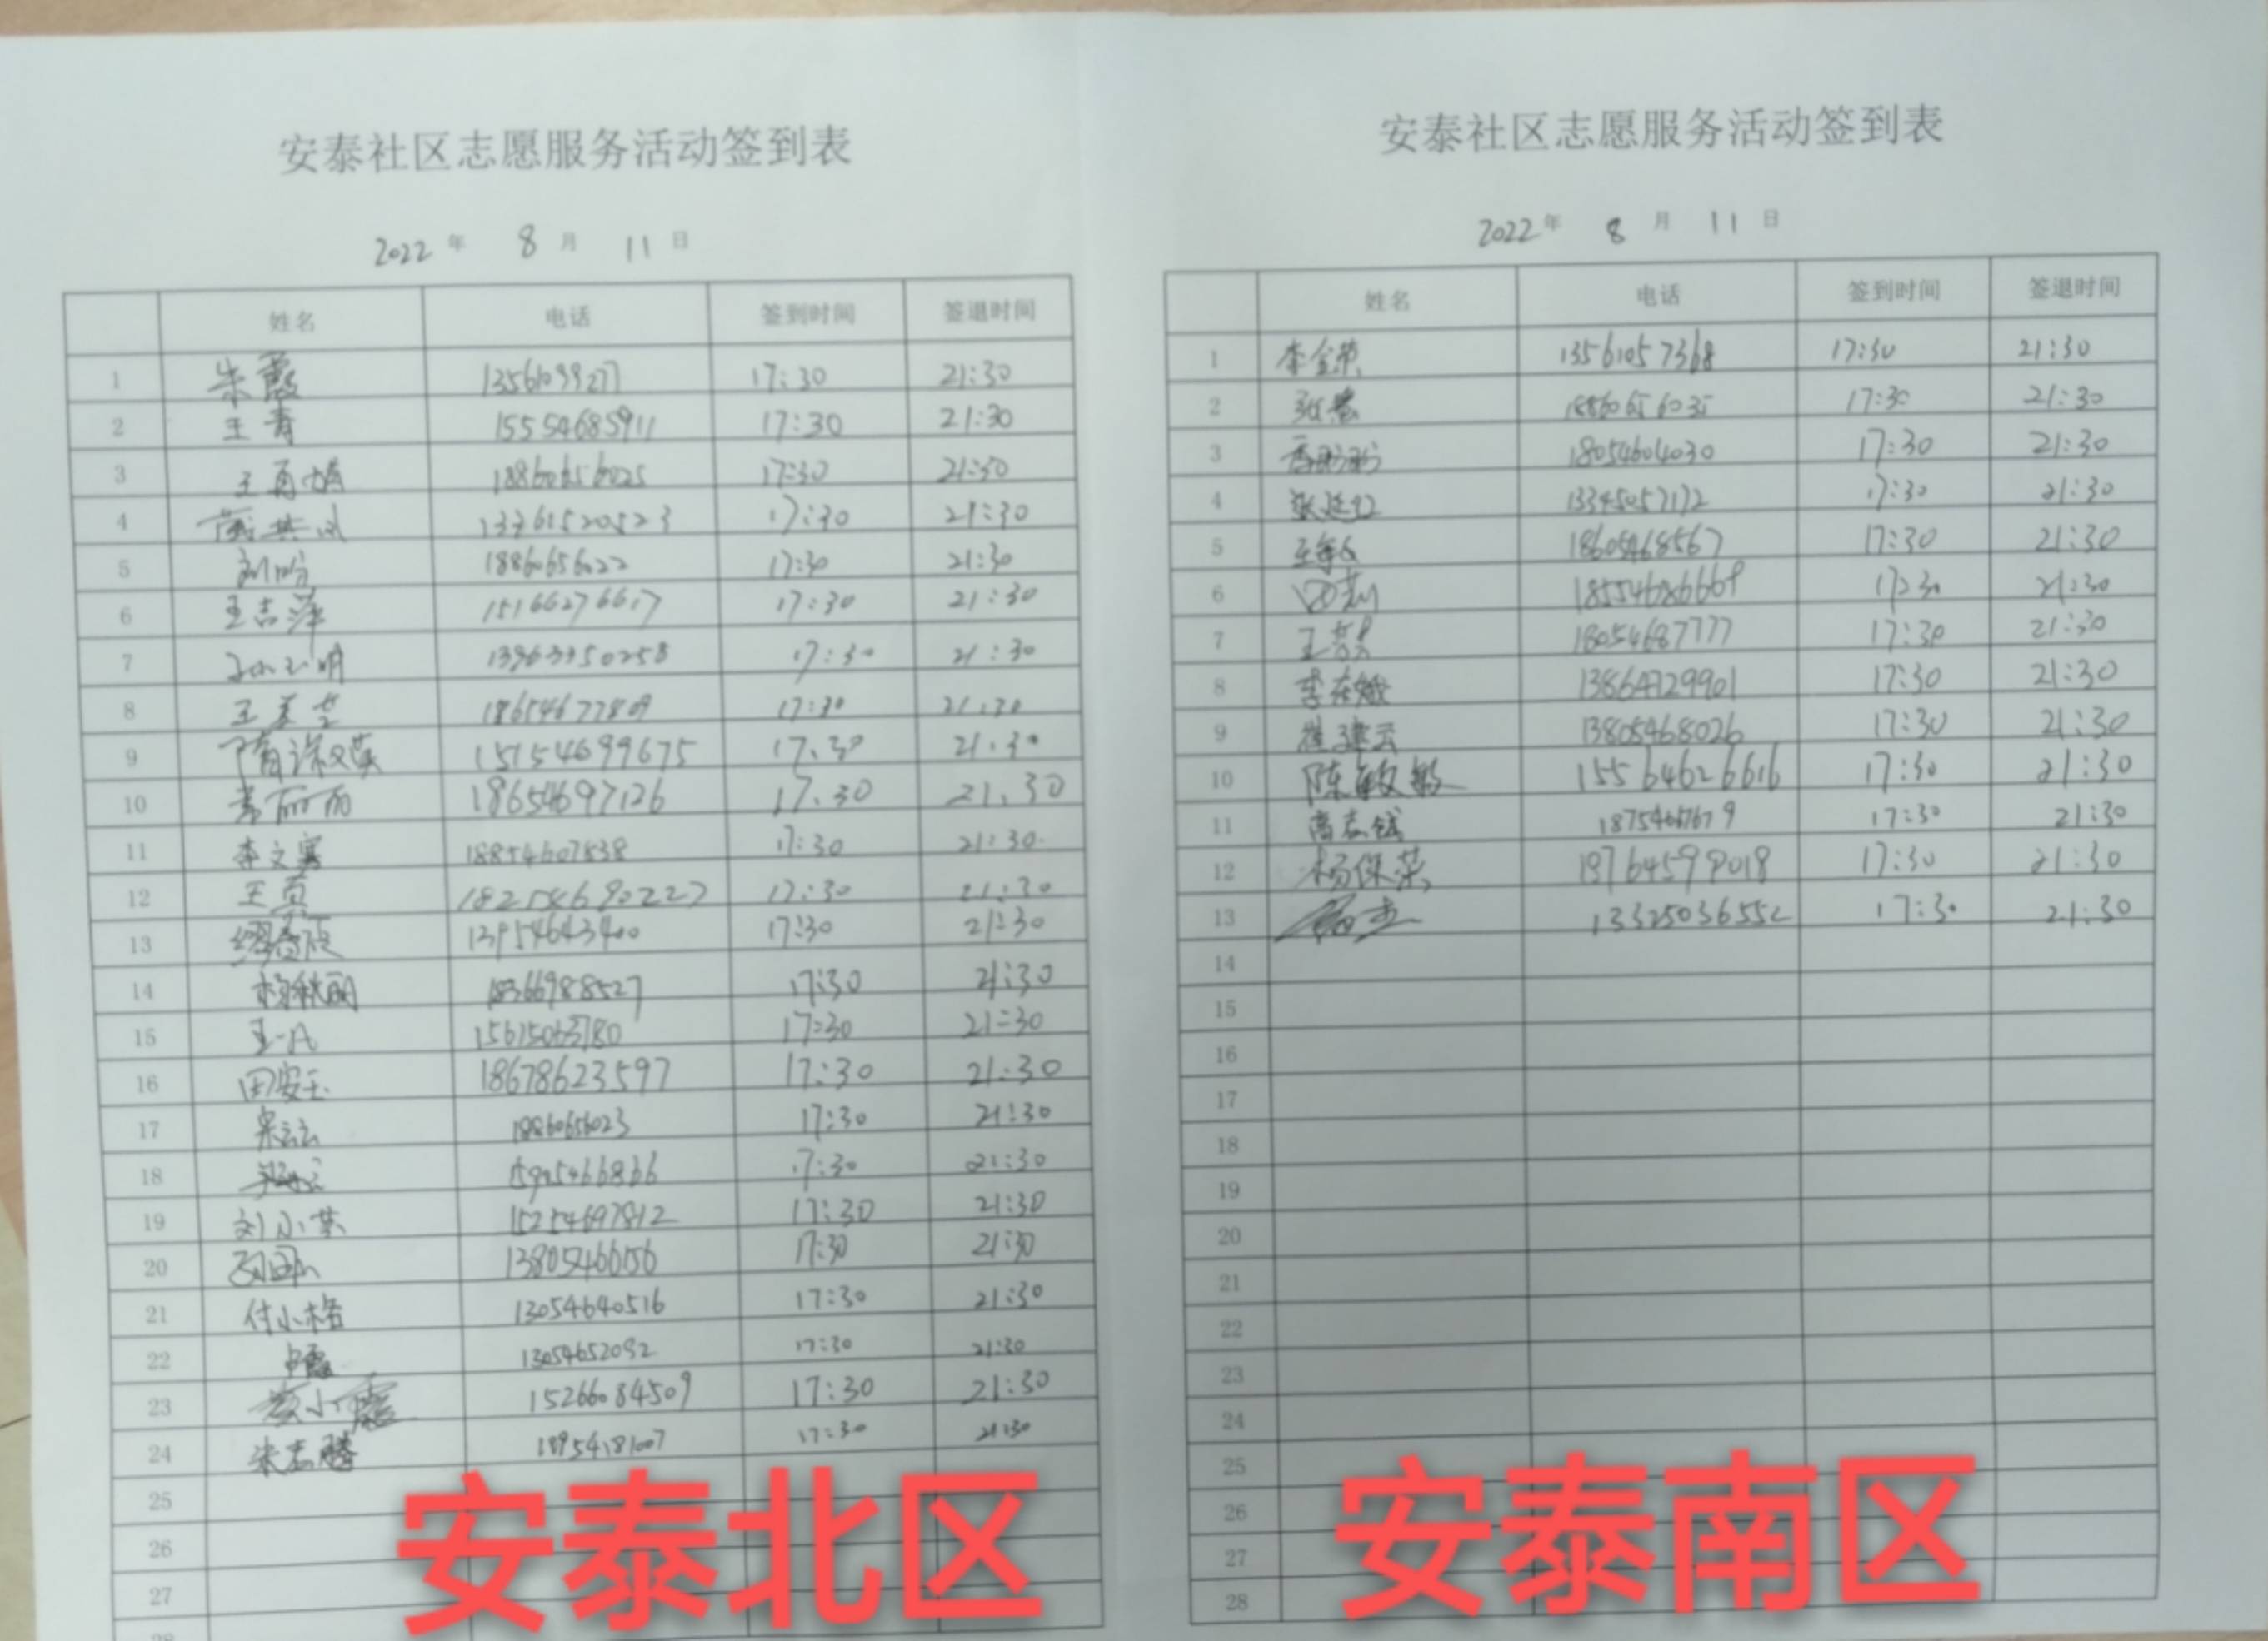 安泰社区志愿服务活动签到表
2022年 8月 11日
姓名 电话 签到时间 签退时间
1 朱霞 13561099277 17:30 21:30
2 王青 15554685911 17:30 21:30
3 18860656025 17:30 21:30
4 17:30 21:30
5 18860656022 17:30 21:30
6 王吉萍 15166276617 17:30 21:30
7 17:30 21:30
8 18654677809 17:30 21:30
9 15154699675 17.30 21.30
10 18654697126 17.30 21.30
11 18854607838 17:30 21:30
12 王真 18254690227 17:30 21:30
13 17:30 21:30
14 杨秋丽 18366988527 17:30 21:30
15 王一凡 15615063780 17:30 21:30
16 田安玉 18678623597 17:30 21:30
17 18860656023 17:30 21:30
18 17:30 21:30
19 刘小英 15254697812 17:30 21:30
20 13805466156 17:30 21:30
21 付小格 13054640516 17:30 21:30
22 13054652092 17:30 21:30
23 15266084509 17:30 21:30
24 朱志腾 18954181007 17:30 21:30
25
26
27
28
安泰北区
安泰社区志愿服务活动签到表
2022年 8月 11日
姓名 电话 签到时间 签退时间
1 李金荣 13561057368 17:30 21:30
2 17:30 21:30
3 18054604030 17:30 21:30
4 13345057172 17:30 21:30
5 18605468567 17:30 21:30
6 17:30 21:30
7 18054687777 17:30 21:30
8 李在娥 13864729901 17:30 21:30
9 崔建云 13805468026 17:30 21:30
10 陈敏敏 15564626616 17:30 21:30
11 17:30 21:30
12 杨保荣 19764599018 17:30 21:30
13 13325036552 17:30 21:30
14
15
16
17
18
19
20
21
22
23
24
25
26
27
28
安泰南区